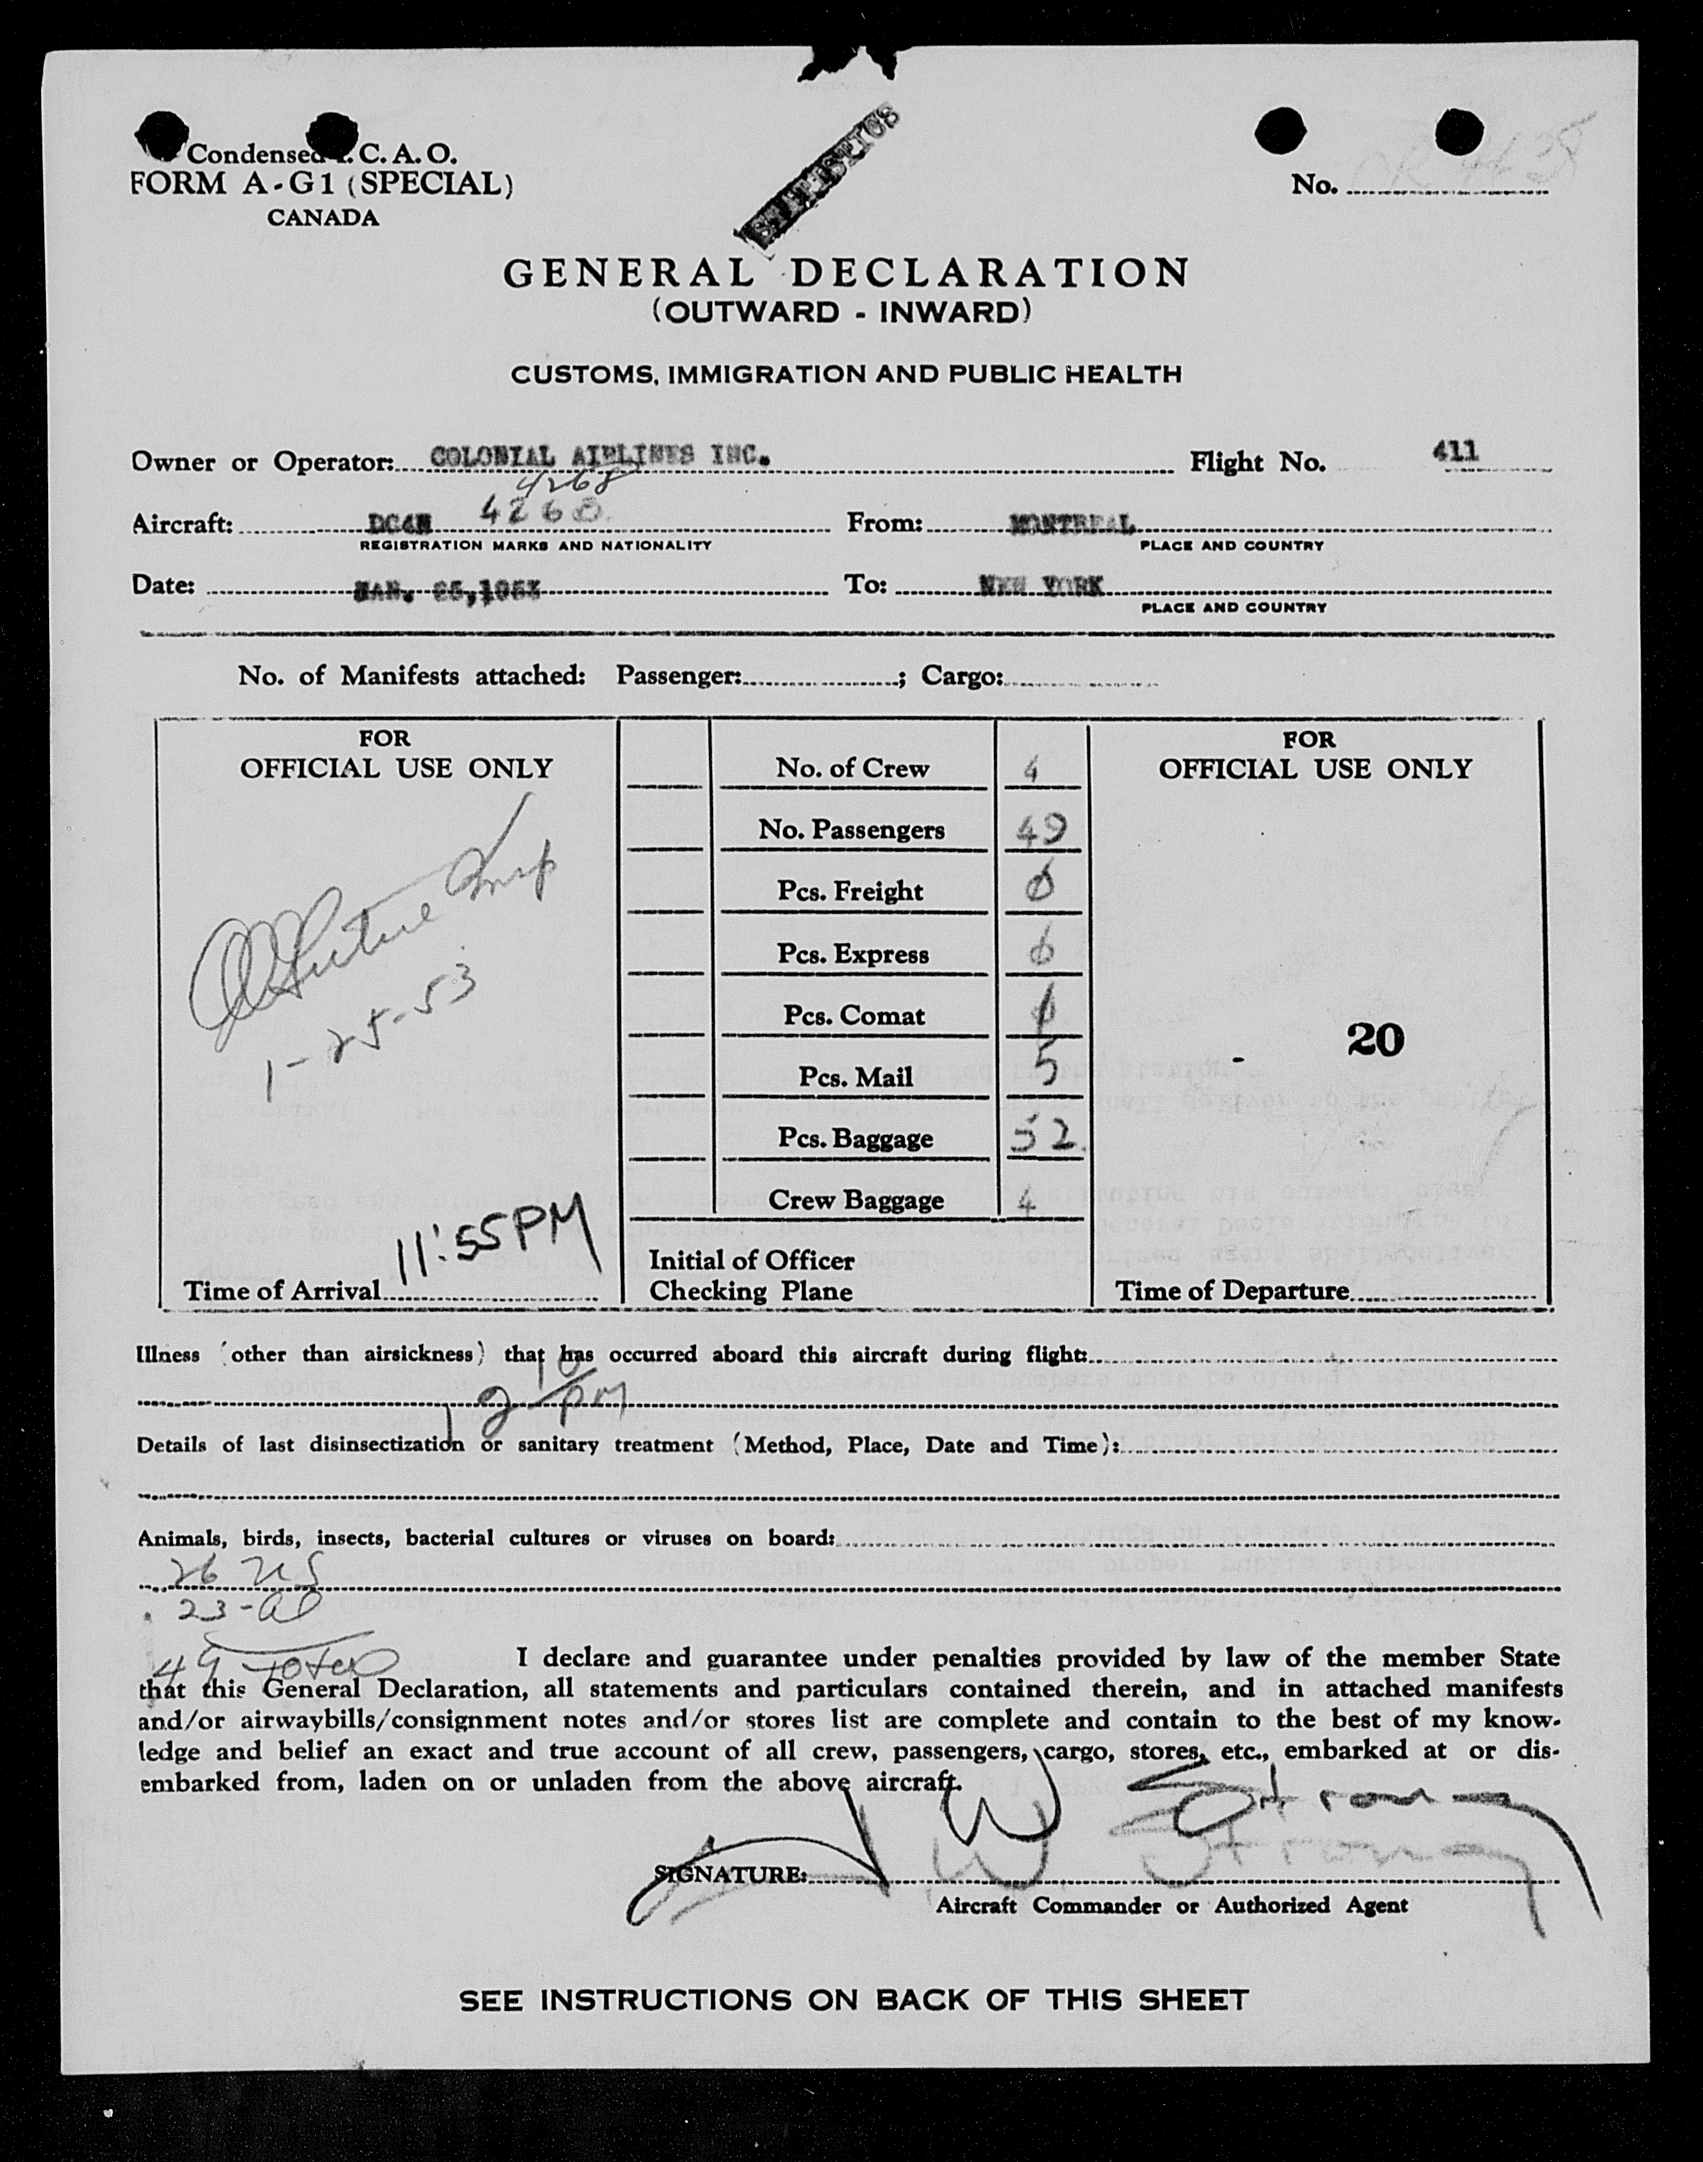 Condensed I. C. A. O.
FORM A-G1 (SPECIAL)
CANADA
STATISTICS
No.
GENERAL DECLARATION
(OUTWARD - INWARD)
CUSTOMS, IMMIGRATION AND PUBLIC HEALTH
Owner or Operator: COLONIAL AIRLINES INC. Flight No. 411
4268
Aircraft: DC4N 4268 From: MONTREAL
REGISTRATION MARKS AND NATIONALITY PLACE AND COUNTRY
Date: JAN. 25, 1953 To: NEW YORK
PLACE AND COUNTRY
No. of Manifests attached: Passenger: ; Cargo:
FOR
OFFICIAL USE ONLY
Insp
1-25-53
11:55 PM
Time of Arrival
No. of Crew 4
No. Passengers 49
Pcs. Freight 0
Pcs. Express 0
Pcs. Comat
Pcs. Mail 5
Pcs. Baggage 52
Crew Baggage 4
Initial of Officer
Checking Plane
FOR
OFFICIAL USE ONLY
- 20
Time of Departure
Illness (other than airsickness) that has occurred aboard this aircraft during flight:
12 10/PM
Details of last disinsectization or sanitary treatment (Method, Place, Date and Time):
Animals, birds, insects, bacterial cultures or viruses on board:
26 US
23-al
49 Total
I declare and guarantee under penalties provided by law of the member State
that this General Declaration, all statements and particulars contained therein, and in attached manifests
and/or airwaybills/consignment notes and/or stores list are complete and contain to the best of my know-
ledge and belief an exact and true account of all crew, passengers, cargo, stores, etc., embarked at or dis-
embarked from, laden on or unladen from the above aircraft.
W Strong
SIGNATURE:
Aircraft Commander or Authorized Agent
SEE INSTRUCTIONS ON BACK OF THIS SHEET